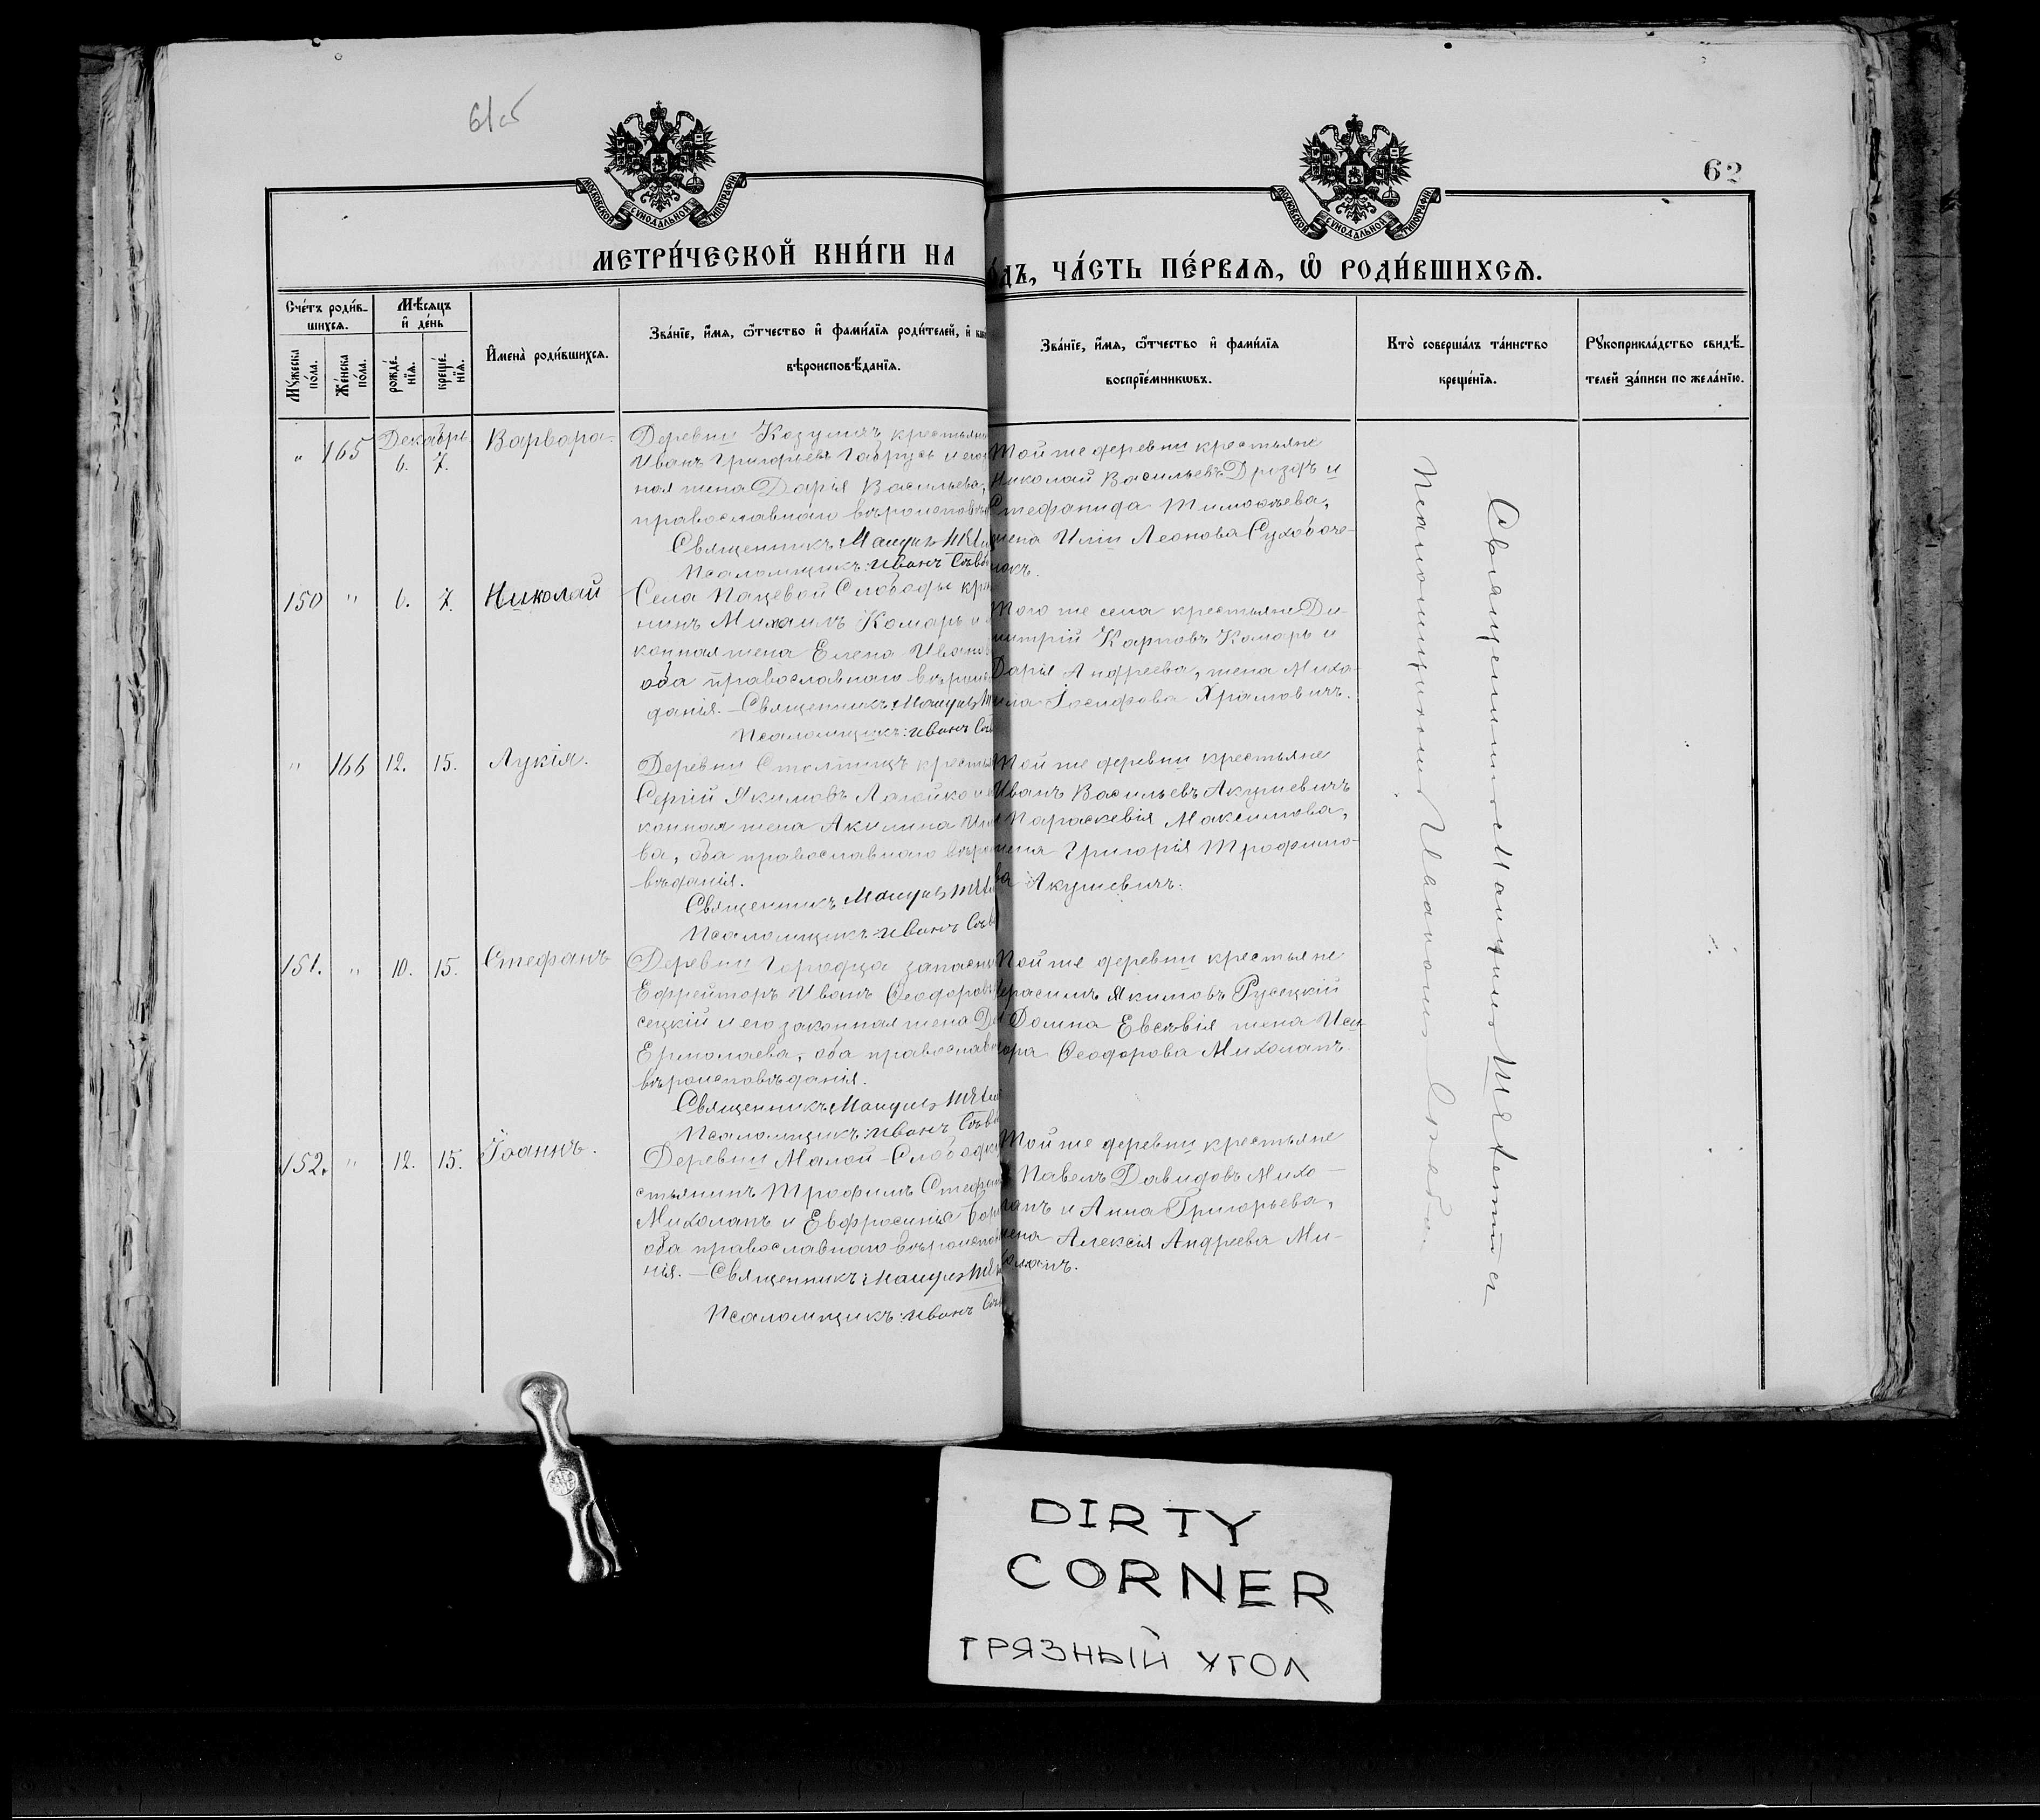 61об
62
МОСКОВСКОЙ СУНОДАЛЬНОЙ ТИПОГРАФІИ
МОСКОВСКОЙ СУНОДАЛЬНОЙ ТИПОГРАФІИ
МЕТРИ́ЧЕСКОЙ КНИ́ГИ НА
ДЪ, ЧА́СТЬ ПЕ́РВАЯ, Ѡ РОДИ́ВШИХСЯ.
Сче́тъ роди́в-
шихся.
Мужеска по́ла.
Же́нска по́ла.
Мѣсяцъ
и де́нь
рожде́-
нїя.
креще́-
нїя.
Имена̀ роди́вшихся.
Зва́нїе, и́мя, ѻтчество и фами́лїя роди́телей, и как
вѣроисповѣданїя.
Зва́нїе, и́мя, ѻтчество и фами́лїя
воспрїе́мникѡвъ.
Кто̀ соверша́лъ та́инство
креще́нїя.
Рукоприкла́дство свидѣ-
телей за́писи по жела́нїю.
" 165 Декабрь 6. 7. Варвара.
Деревни Козулич крестьяни
Иванъ Григорьевъ Габрусь и его
ная жена Дарія Васильева,
православнаго вѣроисповѣ
Священникъ
Псаломщикъ: Иванъ
Той же деревни крестьяне
Николай Васильевъ Дроздъ и
Стефанида Тимоѳеева,
жена Иліи Леонова Сухобоче-
нокъ.
150 " 6. 7. Николай
Села Пацевой Слободы кре
нинъ Михаилъ Комаръ и
конная жена Елена Иванов
оба православнаго вѣроис
данія. — Священникъ:
Псаломщикъ: Иванъ
Того же села крестьяне Ди-
митрій Карповъ Комаръ и
Дарія Андреева, жена Миха-
ила Іосифова Храмовичъ.
" 166 12. 15. Лукія.
Деревни Столпищъ кресть
Сергій Якимовъ Лагойко и
конная жена Акилина
ва, оба православнаго вѣро
вѣданія.
Священникъ
Псаломщикъ: Иванъ
Той же деревни крестьяне
Иванъ Васильевъ Акушевичъ
Параскевія Максимова,
жена Григорія Трофимо-
ва Акушевичъ.
151. " 10. 15. Стефанъ
Деревни Городца запасно
Ефрейторъ Иванъ Ѳеодоровъ
сецкій и его законная жена
Ермолаева, оба православ
вѣроисповѣданія.
Священникъ
Псаломщикъ: Иванъ
Той же деревни крестьяне
Герасимъ Якимовъ Русецкій
Домна Евсѣвія жена Иси-
дора Ѳеодорова Михолапъ.
152. " 12. 15. Іоаннъ.
Деревни Малой-Слободки
стьянинъ Трофимъ Стефан
Михолапъ и Евфросинія
оба православнаго вѣроиспов
нія. — Священникъ:
Псаломщикъ: Иванъ
Той же деревни крестьяне
Павелъ Давидовъ Михо-
лапъ и Анна Григорьева,
жена Алексія Андреева Ми-
холапъ.
Священникомъ
Псаломщикомъ Иваномъ
DIRTY
CORNER
ГРЯЗНЫЙ УГОЛ